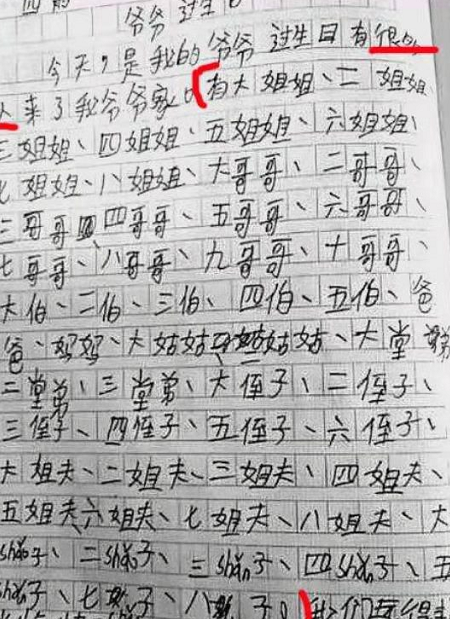 爷爷过生日
今天,是我的爷爷过生日有很多
人来了我爷爷家。有大姐姐、二姐姐、
三姐姐、四姐姐、五姐姐、六姐姐、
七姐姐、八姐姐、大哥哥、二哥哥、
三哥哥、四哥哥、五哥哥、六哥哥、
七哥哥、八哥哥、九哥哥、十哥哥、
大伯、二伯、三伯、四伯、五伯、爸
爸、妈妈、大姑姑、二姑姑、大堂弟
二堂弟、三堂弟、大侄子、二侄子、
三侄子、四侄子、五侄子、六侄子、
大姐夫、二姐夫、三姐夫、四姐夫、
五姐夫、六姐夫、七姐夫、八姐夫、大
shěn子、二shěn子、三shěn子、四shěn子、五
shěn子、七子、八子。我们玩得